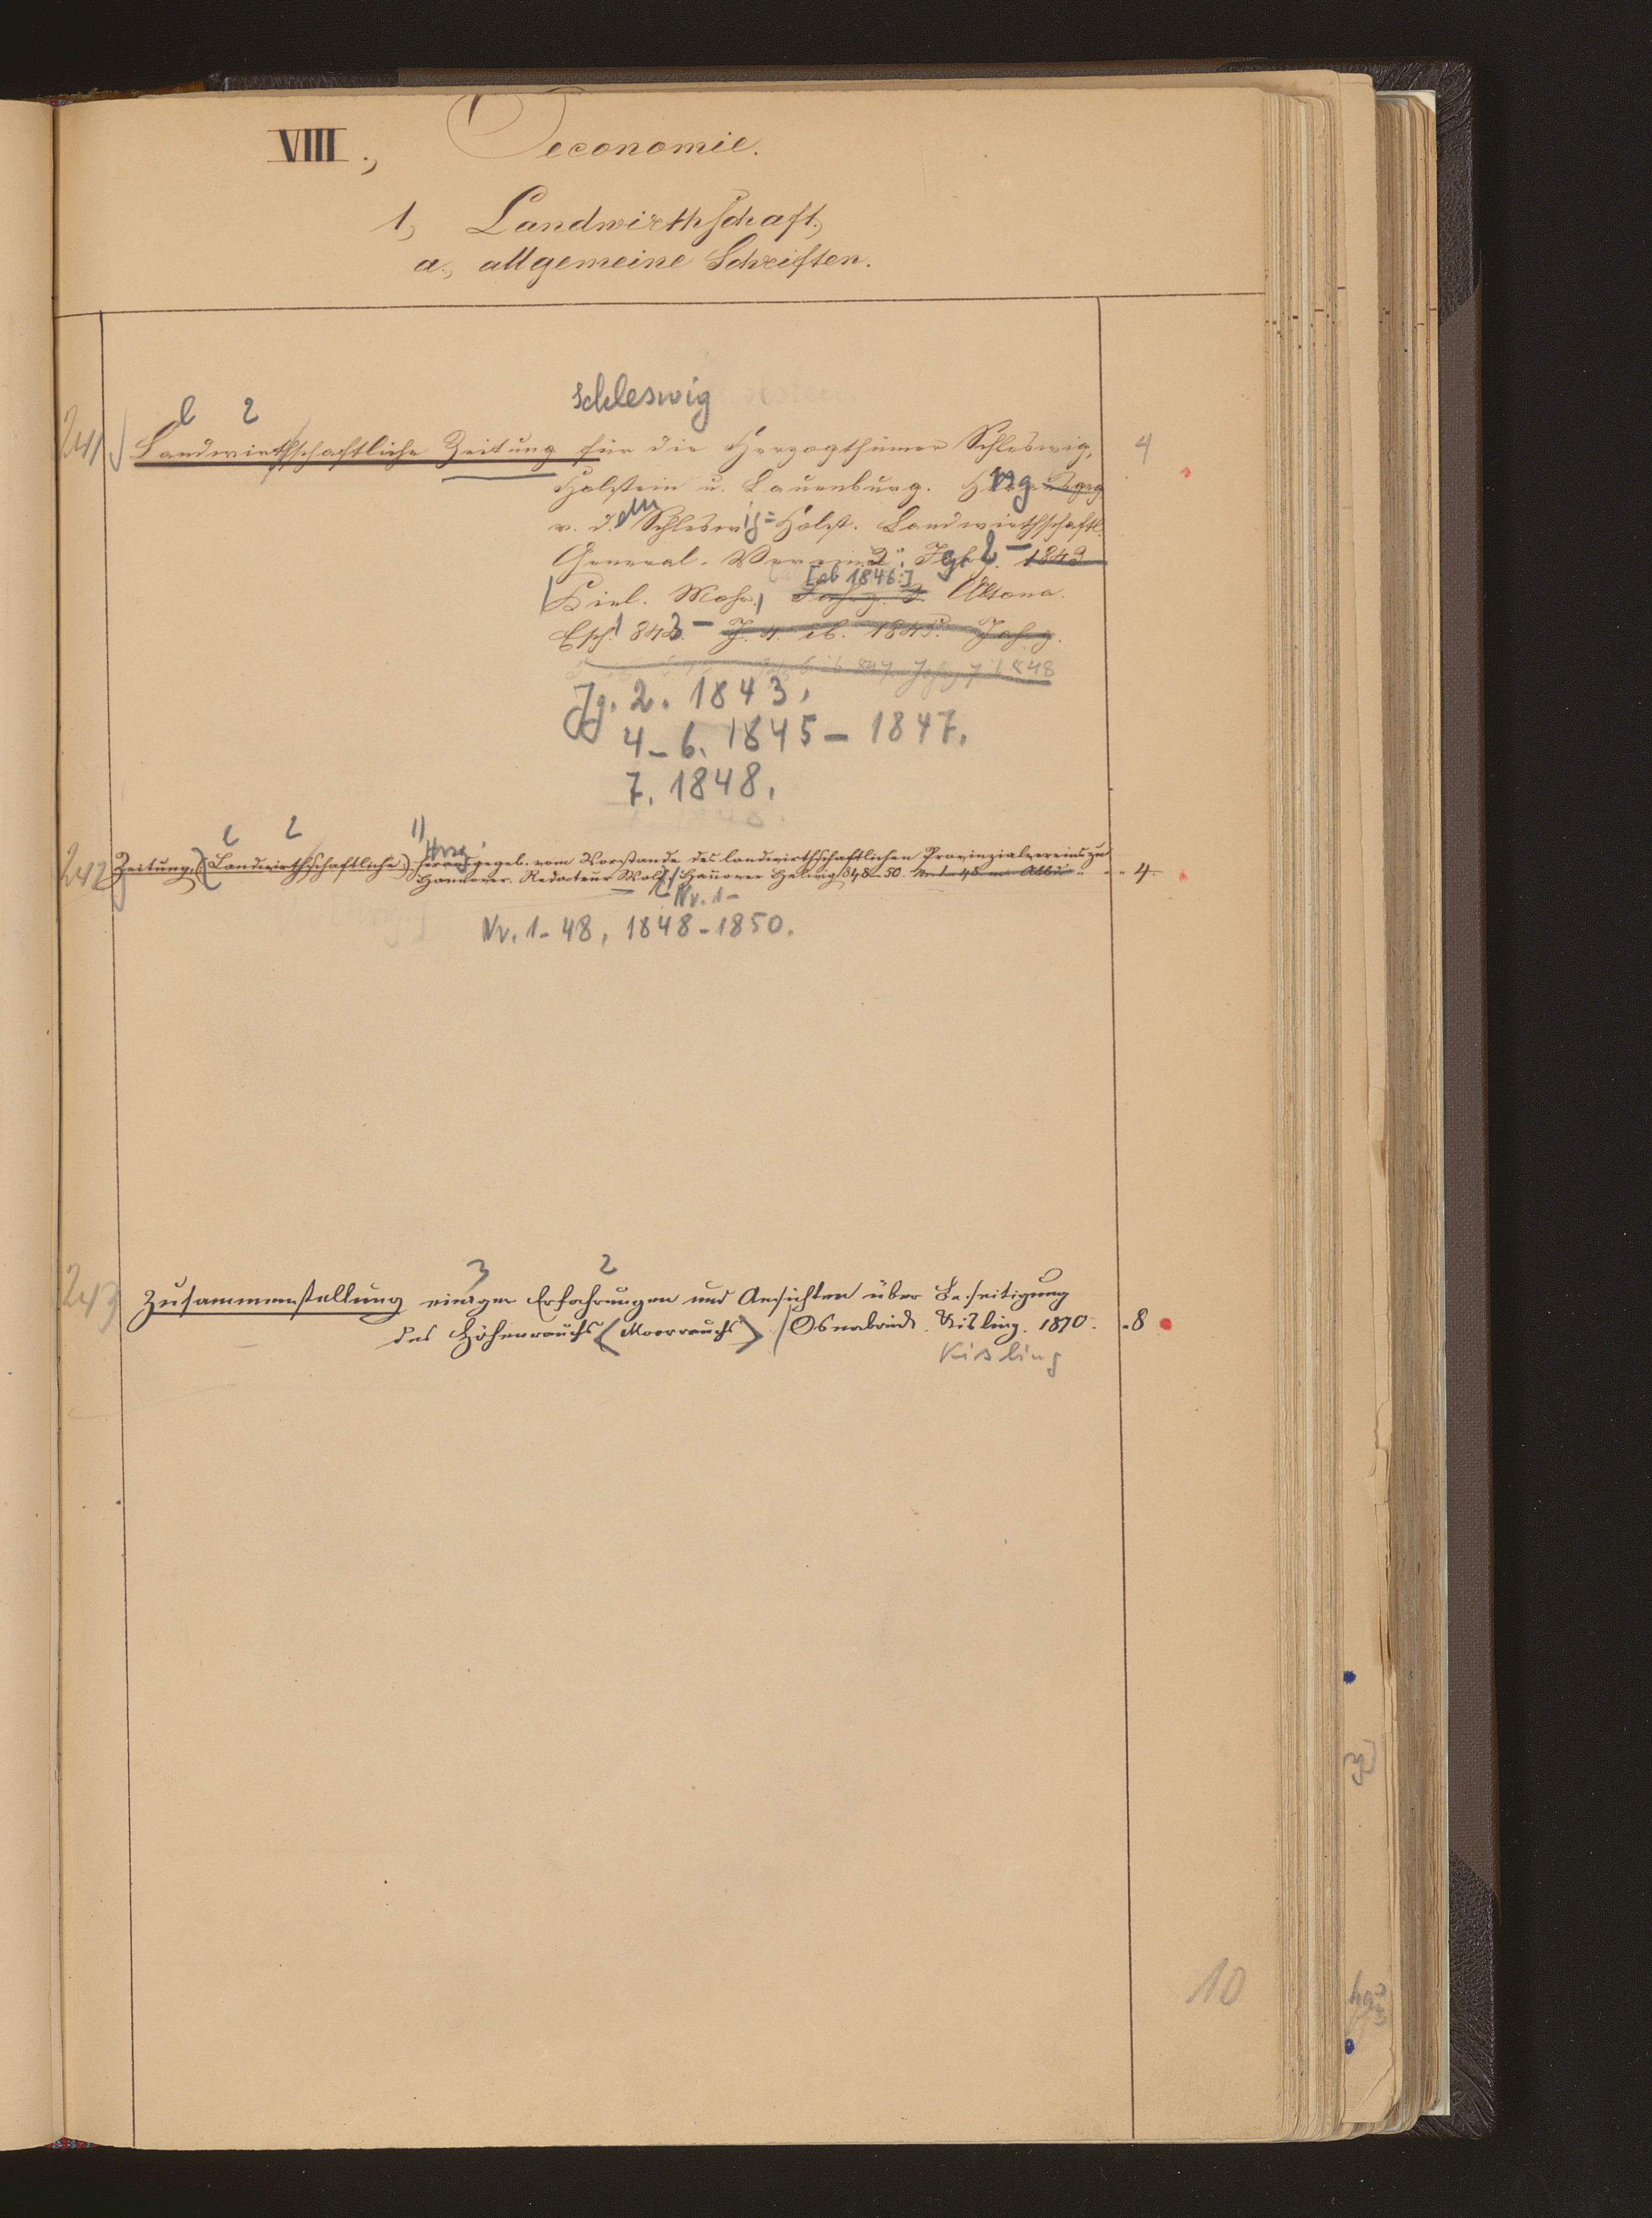 VIII., Oeconomie.
1, Landwirthschaft,
a., allgemeine Schriften.
Schleswig
l 2
241 Landwirthschaftliche Zeitung für die Herzogthümer Schleswig, 4
Holstein u. Lauenburg. Hrsg
v. dem Schleswig-Holst. Landwirthschaftl.
General-Verein 2. Jg. 2 - 1843
[ab 1846:]
Kiel. Mohr. Altona.
1843 - J. 4 ib. 1845. Jahrg.
Jahrg 7 ib 848
Jg. 2. 1843,
4-6. 1845-1847.
7. 1848.
242 Zeitung, (Landwirthschaftliche) Hrsg. herausgegeb. vom Vorstande des landwirthschaftlichen Provinzialvereins zu
Hannover. Redacteur Wolf / Hannover Helwig 848-50. Nr. 1-48 4.
Nr. 1-
Nr. 1-48, 1848-1850.
3 2
243 Zusammenstellung einiger Erfahrungen und Ansichten über Beseitigung
des Höhenrauchs (Moorrauchs) / Osnabrück. Kisling. 1870. 8
Kisling
10